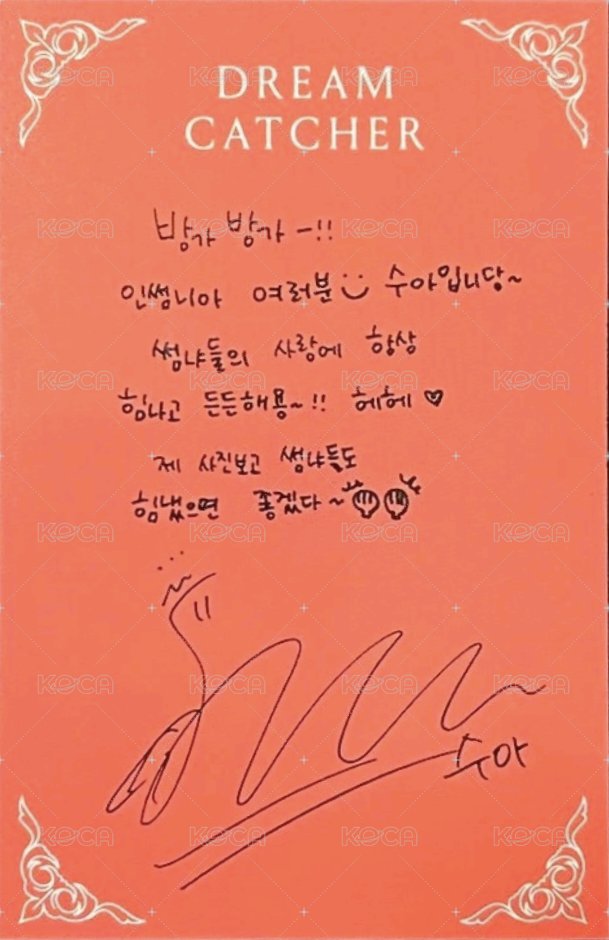 DREAM
CATCHER
방가 방가-!!
인썸니아 여러분 수아입니당~
썸냐들의 사랑에 항상
힘나고 든든해용~!! 헤헤 ♥
제 사진보고 썸냐들도
힘냈으면 좋겠다~
수아